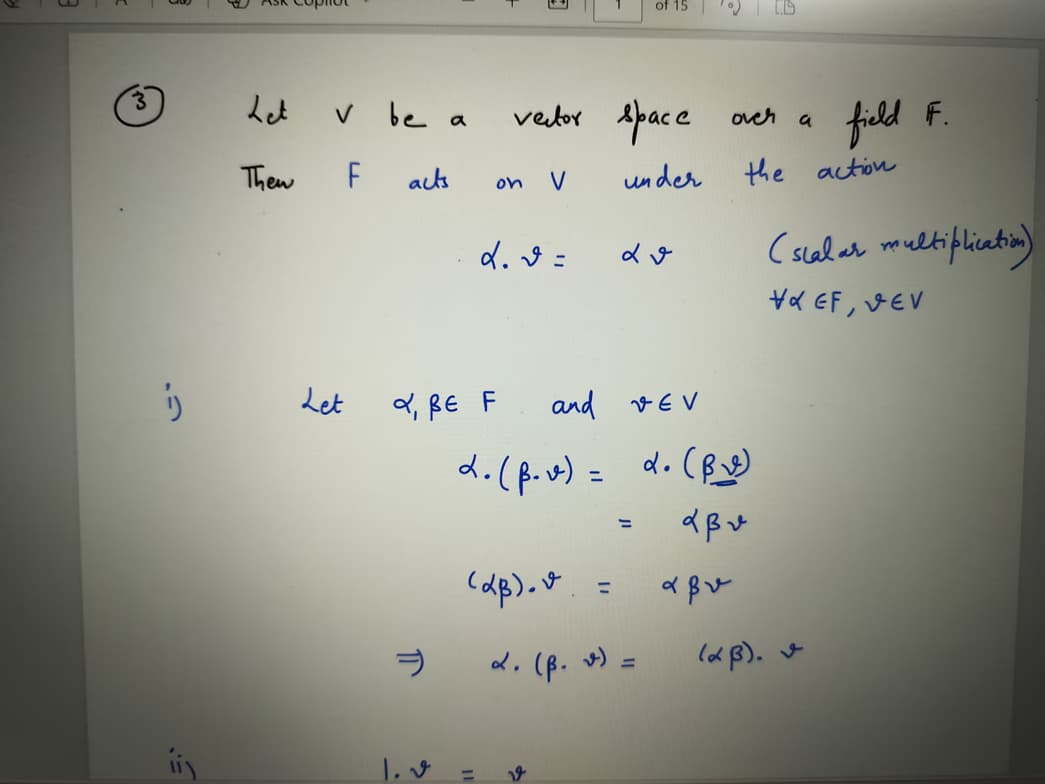 Ask Copilot
1 of 15
③ Let V be a vector space over a field F.
Then F acts on V under the action
α.v = αv (scalar multiplication)
∀α∈F, v∈V
i) Let α, β∈ F and v∈V
α.(β.v) = α.(βv)
= αβv
(αβ).v = αβv
⇒ α.(β.v) = (αβ).v
ii) 1.v = v